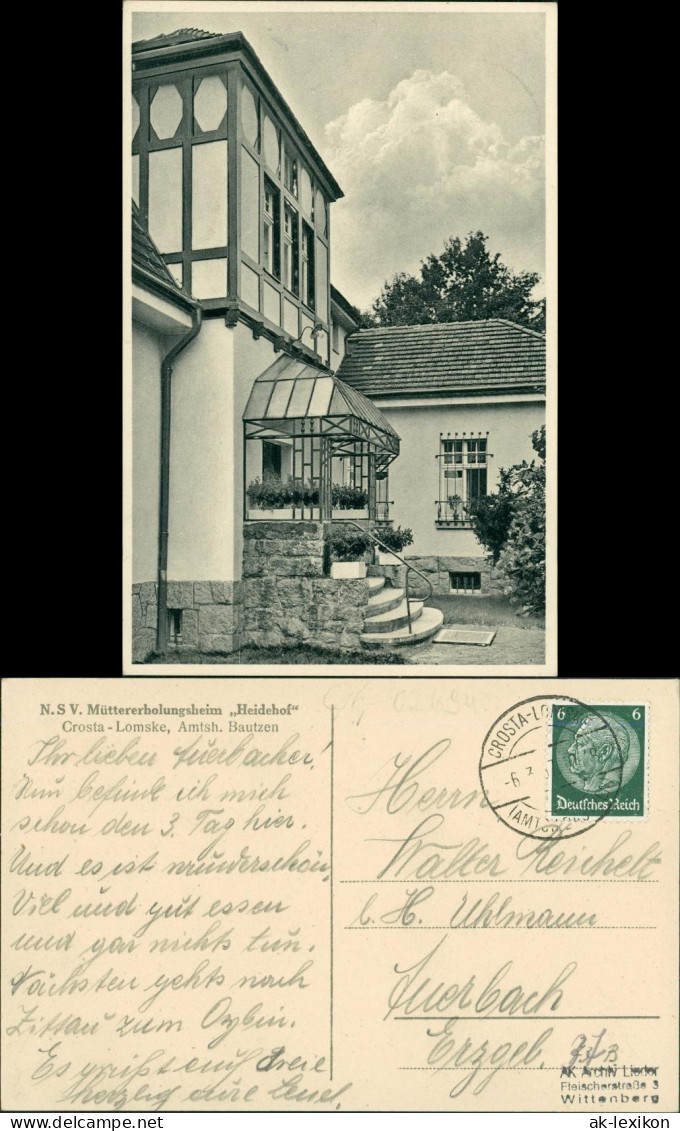 N. S V. Müttererholungsheim „Heidehof“
Crosta - Lomske, Amtsh. Bautzen
Ihr lieben Auerbacher!
Nun befinde ich mich
schon den 3. Tag hier.
Und es ist wunderschön,
Viel und gut essen
und gar nichts tun.
Nächsten gehts nach
Zittau zum Oybin.
Es grüßt euch
herzlig eure
CROSTA-LO
-6.
(AMTSH.
6 6
Deutsches Reich
Herrn
Walter Reichelt
b. H. Uhlmann
Auerbach
Erzgeb.
AK Archiv
Fleischerstraße 3
Wittenberg
ak-lexikon